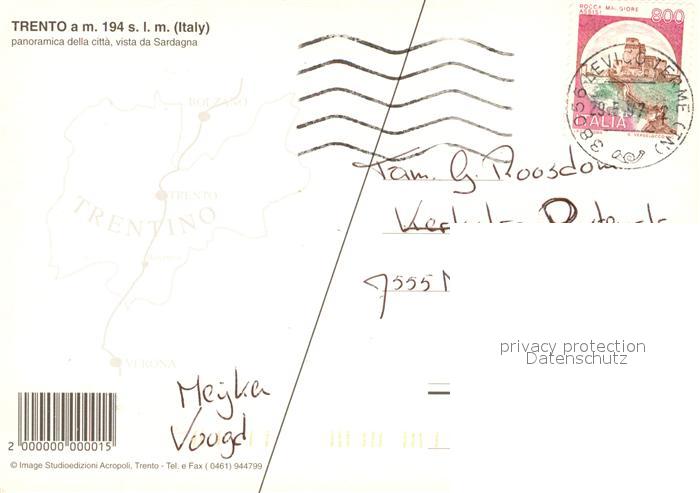 TRENTO a m. 194 s. l. m. (Italy)
panoramica della città, vista da Sardagna
ROCCA MAGGIORE
ASSISI
800
ITALIA
38056 LEVICO TERME (TN)
BOLZANO
TRENTO
TRENTINO
VERONA
Fam. G. Roosdom
7555
privacy protection
Datenschutz
Meijke
Voogd
2 000000 000015
© Image Studioedizioni Acropoli, Trento - Tel. e Fax ( 0461) 944799